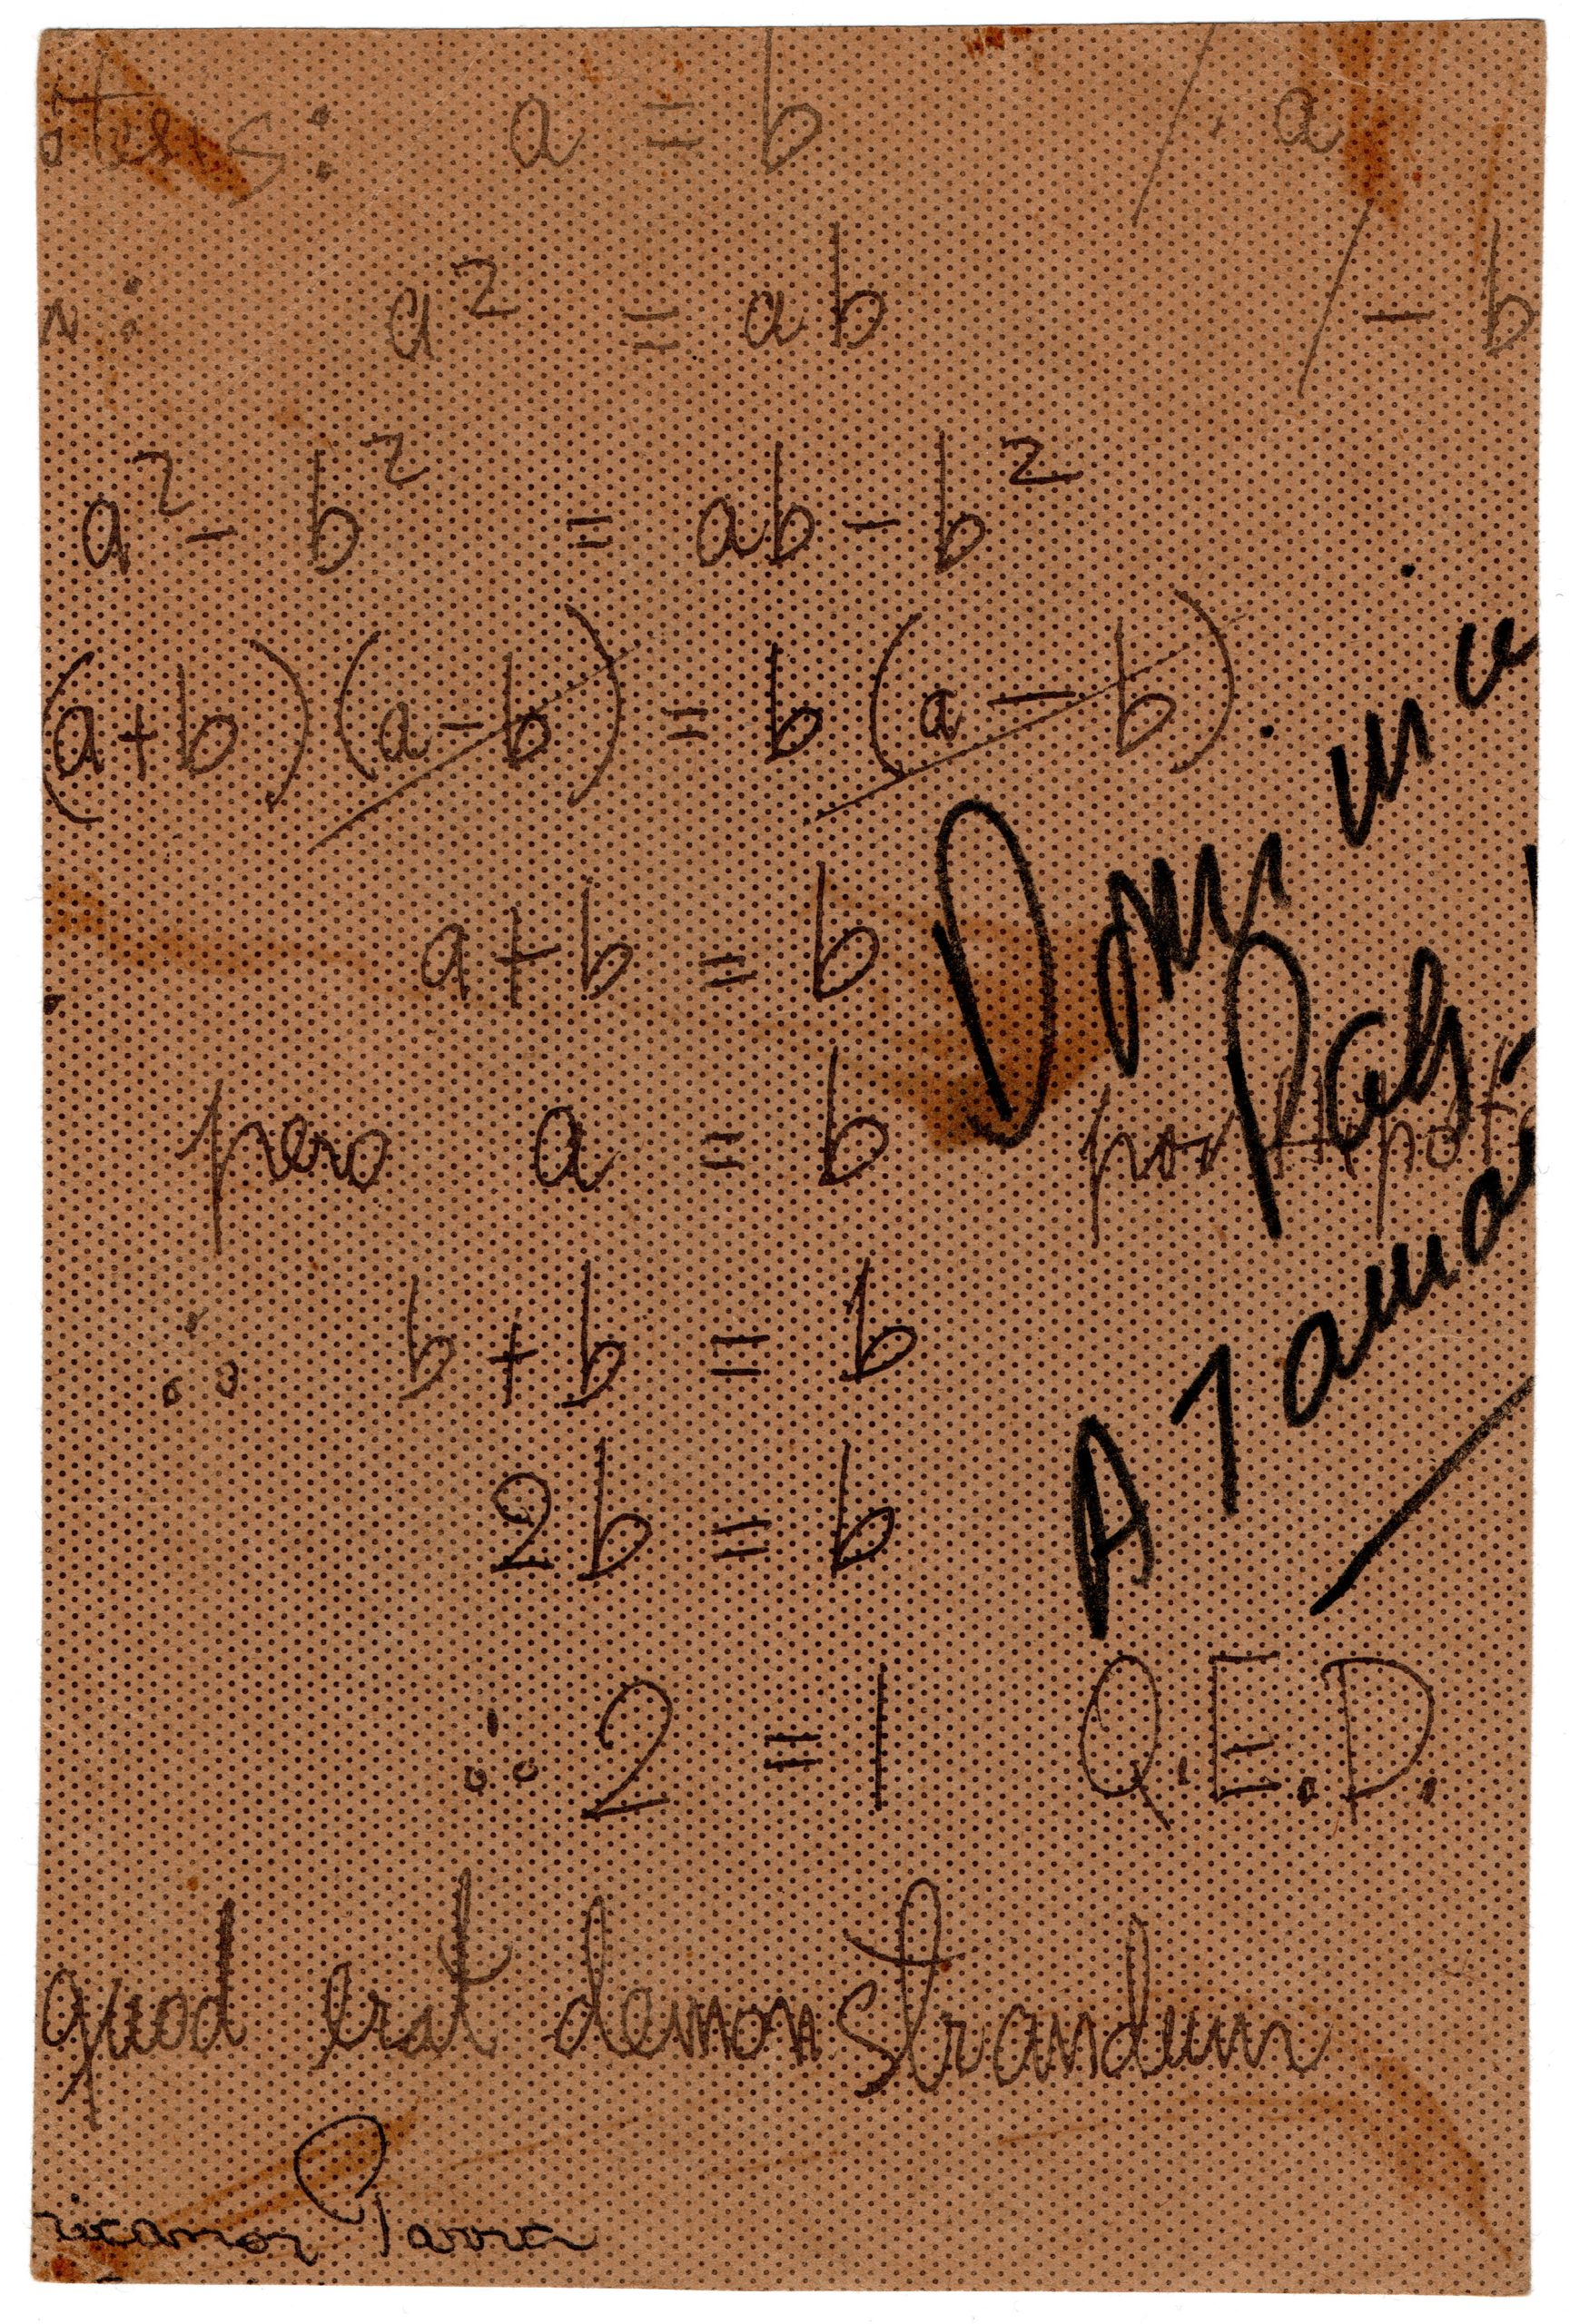 ótesis: a = b / · a
n: a² = ab / - b
a² - b² = ab - b²
(a+b)(a-b) = b(a-b).
a+b = b
pero a = b por Hipót
∴ b+b = b
2b = b
∴ 2 = 1 Q.E.D.
quod erat demonstrandum
nicanor Parra